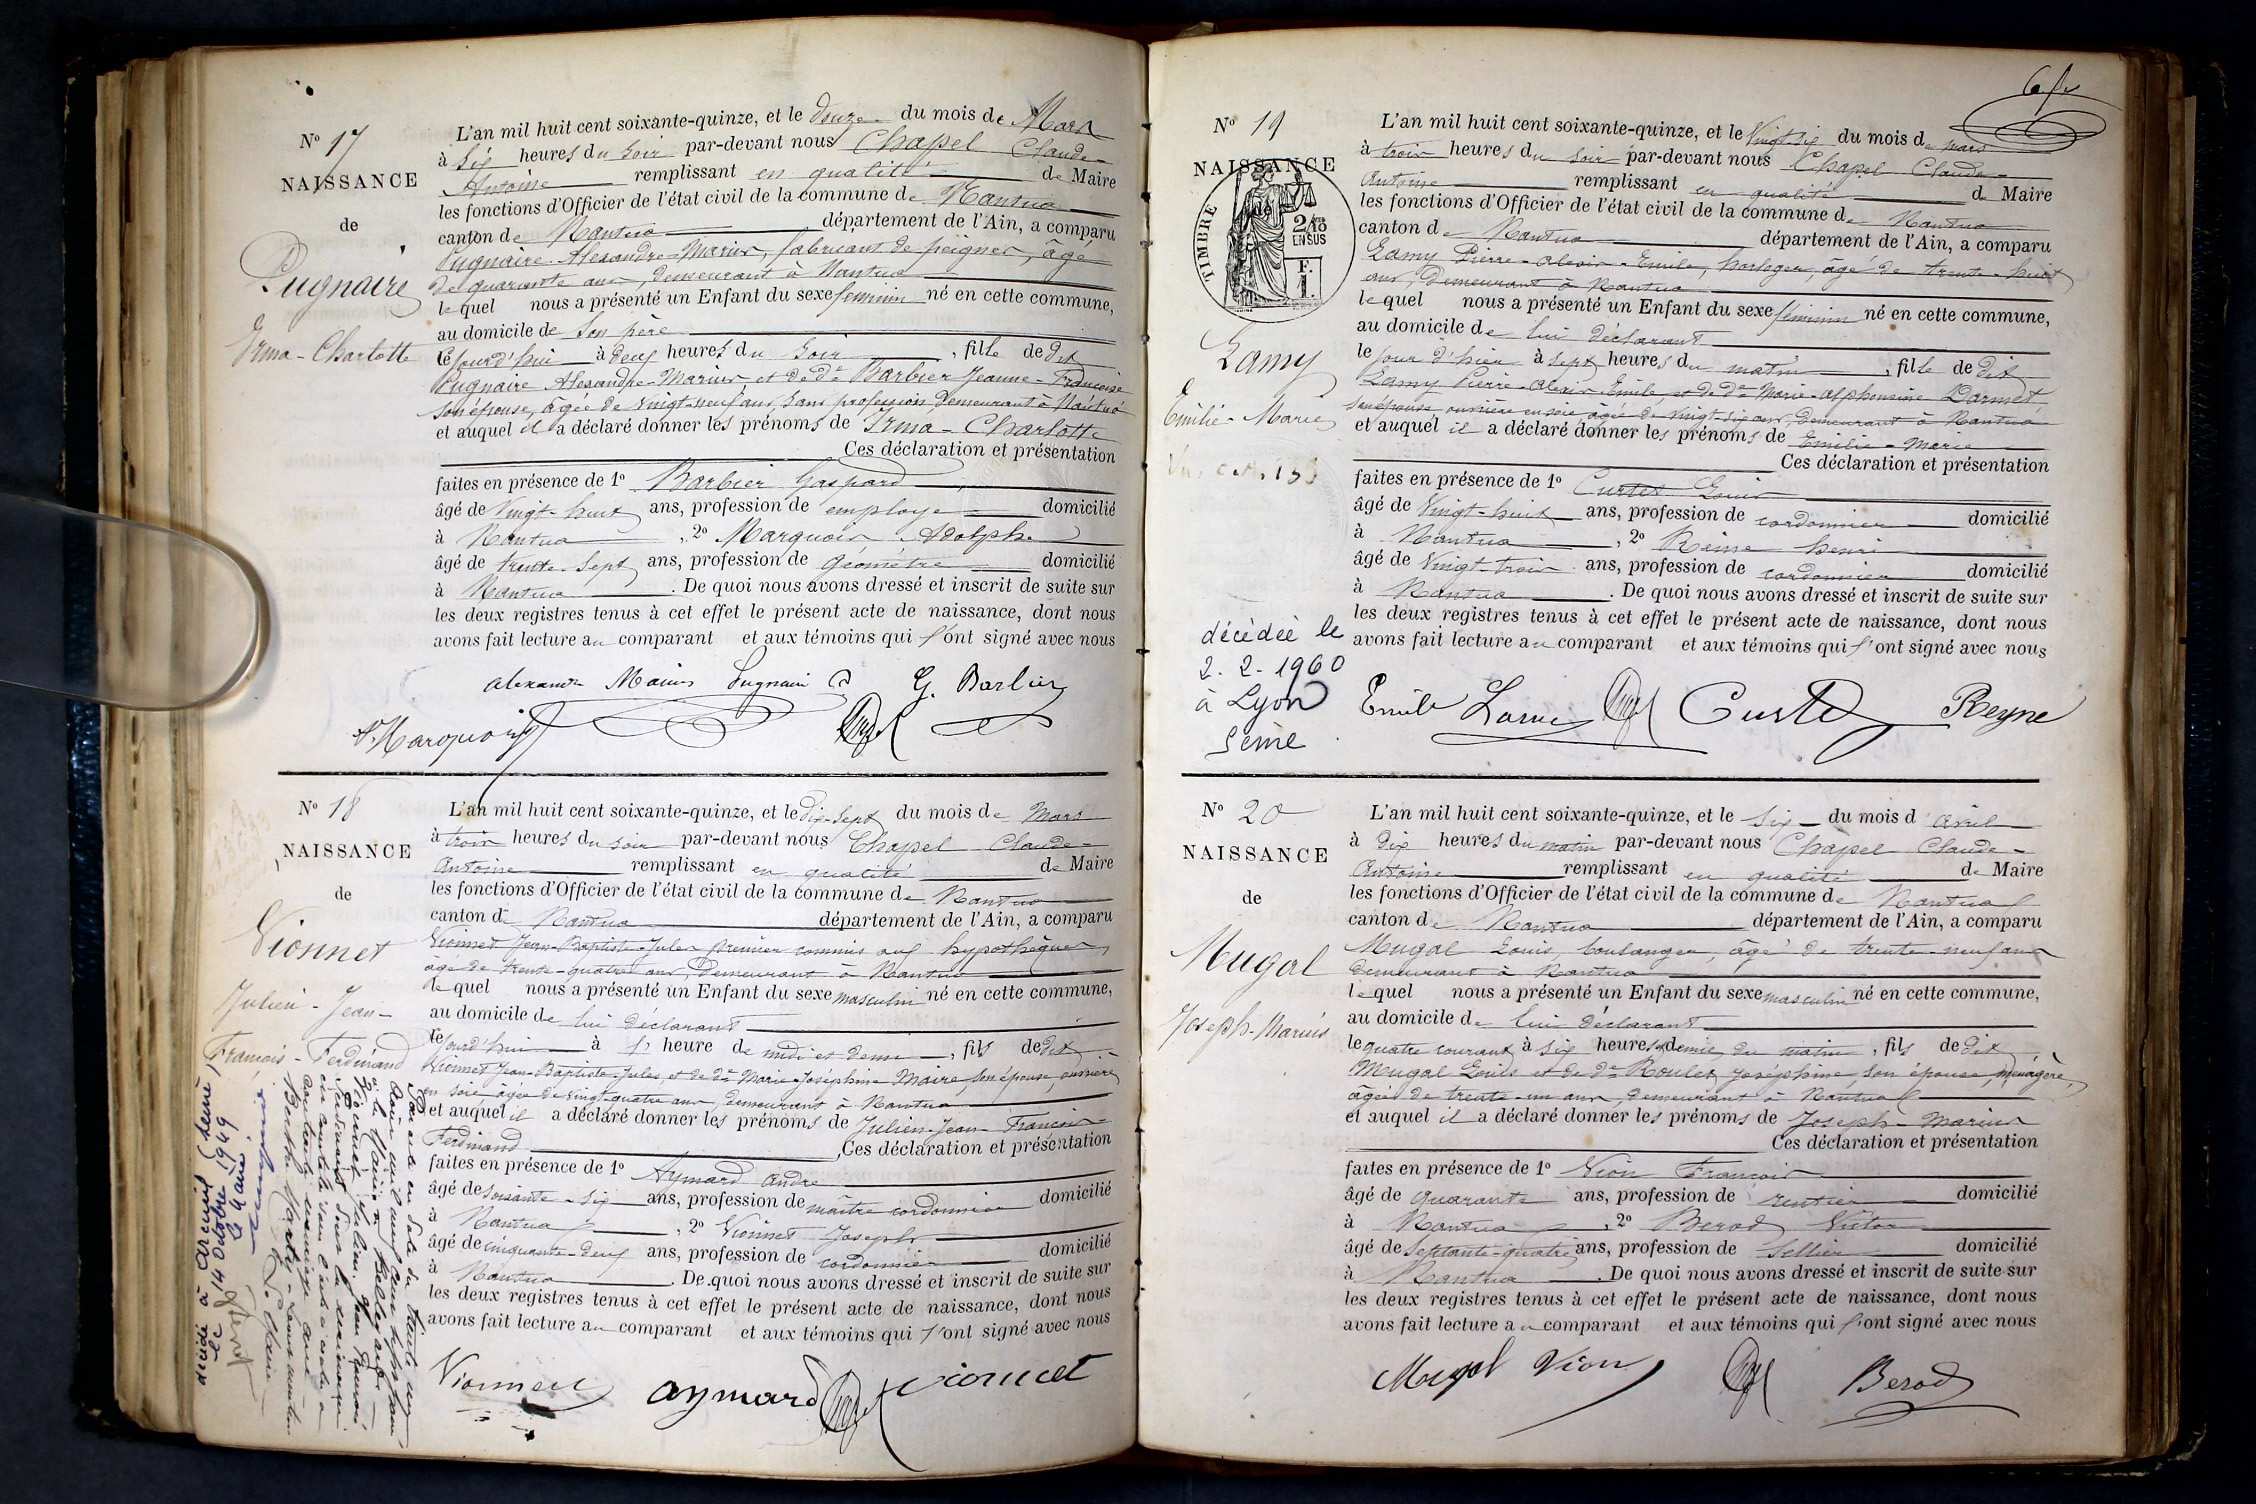 N° 17
NAISSANCE
de
Pugnaire
Irma-Charlotte
L'an mil huit cent soixante-quinze, et le douze du mois de Mars
à six heures du soir par-devant nous Chapel Claude-
Antoine remplissant en qualité de Maire
les fonctions d'Officier de l'état civil de la commune de Nantua
canton de Nantua département de l'Ain, a comparu
Pugnaire Alexandre-Marius, fabricant de peignes, âgé
de quarante ans, demeurant à Nantua
lequel nous a présenté un Enfant du sexe féminin né en cette commune,
au domicile de son père
ce jourd'hui à deux heures du soir, fille de dit
Pugnaire Alexandre-Marius et de de Barbier Jeanne-Françoise
son épouse, âgée de vingt-neuf ans, sans profession, demeurant à Nantua
et auquel il a déclaré donner les prénoms de Irma-Charlotte
Ces déclaration et présentation
faites en présence de 1° Barbier Gaspard
âgé de vingt-huit ans, profession de employé domicilié
à Nantua, 2° Marquois Adolphe
âgé de trente-sept ans, profession de géomètre domicilié
à Nantua. De quoi nous avons dressé et inscrit de suite sur
les deux registres tenus à cet effet le présent acte de naissance, dont nous
avons fait lecture au comparant et aux témoins qui l'ont signé avec nous
G. Barbier
A. Marquois
N° 18
NAISSANCE
de
Vionnet
Julien-Jean-
François-Ferdinand
L'an mil huit cent soixante-quinze, et le dix-sept du mois de Mars
à trois heures du soir par-devant nous Chapel Claude-
Antoine remplissant en qualité de Maire
les fonctions d'Officier de l'état civil de la commune de Nantua
canton de Nantua département de l'Ain, a comparu
Vionnet Jean-Baptiste-Jules premier commis aux hypothèques,
âgé de trente-quatre ans, demeurant à Nantua
lequel nous a présenté un Enfant du sexe masculin né en cette commune,
au domicile de lui déclarant
ce jourd'hui à heure de midi et demi, fils de dit
Vionnet Jean-Baptiste-Jules, et de de Marie-Joséphine Maire, son épouse, ouvrière
en soie âgée de vingt-quatre ans, demeurant à Nantua
et auquel il a déclaré donner les prénoms de Julien-Jean-François-
Ferdinand Ces déclaration et présentation
faites en présence de 1° Aymard André
âgé de soixante-six ans, profession de maître cordonnier domicilié
à Nantua, 2° Vionnet Joseph
âgé de cinquante-deux ans, profession de cordonnier domicilié
à Nantua. De quoi nous avons dressé et inscrit de suite sur
les deux registres tenus à cet effet le présent acte de naissance, dont nous
avons fait lecture au comparant et aux témoins qui l'ont signé avec nous
Vionnet Aymard Vionnet
décédé à Arcueil (Seine)
le 14 Octobre 1949
Le Maire
N° 19
NAISSANCE
de
TIMBRE
2/10
EN SUS
F.
1.
Lamy
Emilie-Marie
décédée le
2-2-1960
à Lyon
5ème
L'an mil huit cent soixante-quinze, et le vingt-six du mois de mars
à trois heures du soir par-devant nous Chapel Claude-
Antoine remplissant en qualité de Maire
les fonctions d'Officier de l'état civil de la commune de Nantua
canton de Nantua département de l'Ain, a comparu
Lamy Pierre-Alexis-Emile, horloger, âgé de trente-huit
ans, demeurant à Nantua
lequel nous a présenté un Enfant du sexe féminin né en cette commune,
au domicile de lui déclarant
le jour d'hier à sept heures du matin, fille de dit
Lamy Pierre-Alexis-Emile, et de de Marie-Alphonsine Darmet
son épouse, ouvrière en soie âgée de vingt-six ans, demeurant à Nantua
et auquel il a déclaré donner les prénoms de Emilie-Marie
Ces déclaration et présentation
faites en présence de 1° Curtet Louis
âgé de vingt-huit ans, profession de cordonnier domicilié
à Nantua, 2° Reine henri
âgé de vingt-trois ans, profession de cordonnier domicilié
à Nantua. De quoi nous avons dressé et inscrit de suite sur
les deux registres tenus à cet effet le présent acte de naissance, dont nous
avons fait lecture au comparant et aux témoins qui l'ont signé avec nous
Emile Lamy Curtet Reyne
N° 20
NAISSANCE
de
Mugal
Joseph-Marius
L'an mil huit cent soixante-quinze, et le six du mois d'avril
à dix heures du matin par-devant nous Chapel Claude-
Antoine remplissant en qualité de Maire
les fonctions d'Officier de l'état civil de la commune de Nantua
canton de Nantua département de l'Ain, a comparu
Mugal Louis, boulanger, âgé de trente-neuf ans
demeurant à Nantua
lequel nous a présenté un Enfant du sexe masculin né en cette commune,
au domicile de lui déclarant
le quatre courant à six heures et demie du matin, fils de dit
Mugal Louis et de de Roulet Joséphine, son épouse, ménagère,
âgée de trente-un ans, demeurant à Nantua
et auquel il a déclaré donner les prénoms de Joseph-Marius
Ces déclaration et présentation
faites en présence de 1° Vion François
âgé de quarante ans, profession de rentier domicilié
à Nantua, 2° Berod Victor
âgé de septante-quatre ans, profession de sellier domicilié
à Nantua. De quoi nous avons dressé et inscrit de suite sur
les deux registres tenus à cet effet le présent acte de naissance, dont nous
avons fait lecture au comparant et aux témoins qui l'ont signé avec nous
Mugal Vion Berod